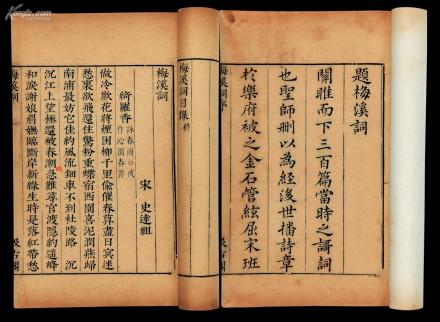 題梅溪詞
關雎而下三百篇當時之謌詞
也聖師刪以為經後世播詩章
於樂府被之金石管絃屈宋班
梅溪詞序
汲古閣
梅溪詞目錄 終
梅溪詞
宋 史達祖
綺羅香
詠春雨
做冷欺花將煙困柳千里偷催春暮盡日冥迷
愁裏欲飛還住驚粉重蝶宿西園喜泥潤燕歸
南浦最妨它佳約風流鈿車不到杜陵路 沉
沉江上望極還被春潮急難尋官渡隱約遙峰
和淚謝娘眉嫵臨斷岸新綠生時是落紅帶愁
梅溪詞
汲古閣
Kongfz.com